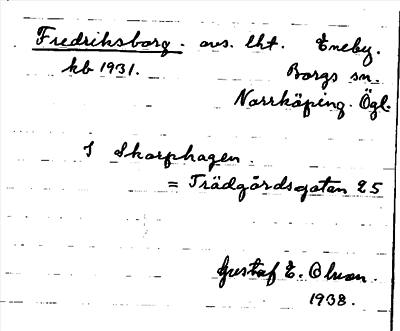 Fredriksborg. avs. lht. Eneby.
kb 1931. Borgs sn.
Norrköping. Ögl.
I Skarphagen.
= Trädgårdsgatan 25
Gustaf E. Olsson.
1938.